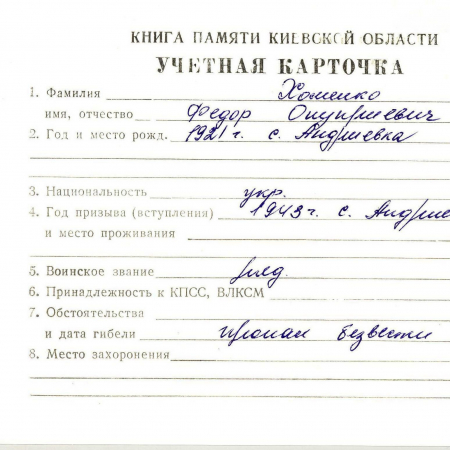 КНИГА ПАМЯТИ КИЕВСКОЙ ОБЛАСТИ
УЧЕТНАЯ КАРТОЧКА
1. Фамилия Хоменко
имя, отчество Федор Онуприевич
2. Год и место рожд. 1921 г. с. Андриевка
3. Национальность укр.
4. Год призыва (вступления) 1943 г. с. Андрие
и место проживания
5. Воинское звание ряд.
6. Принадлежность к КПСС, ВЛКСМ
7. Обстоятельства
и дата гибели пропал безвести
8. Место захоронения